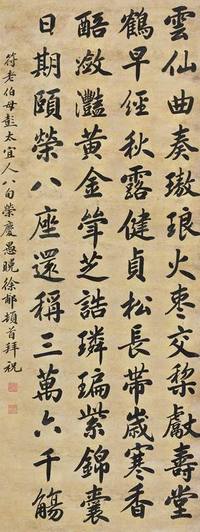 雲仙曲奏璈琅火棗交棃獻壽堂
鶴早經秋露健貞松長帶歲寒香
醅瀲灩黃金斝芝誥璘紫錦囊
日期頤榮八座還稱三萬六千觴
符老伯母彭太宜人八旬榮慶愚晚徐郙頓首拜祝